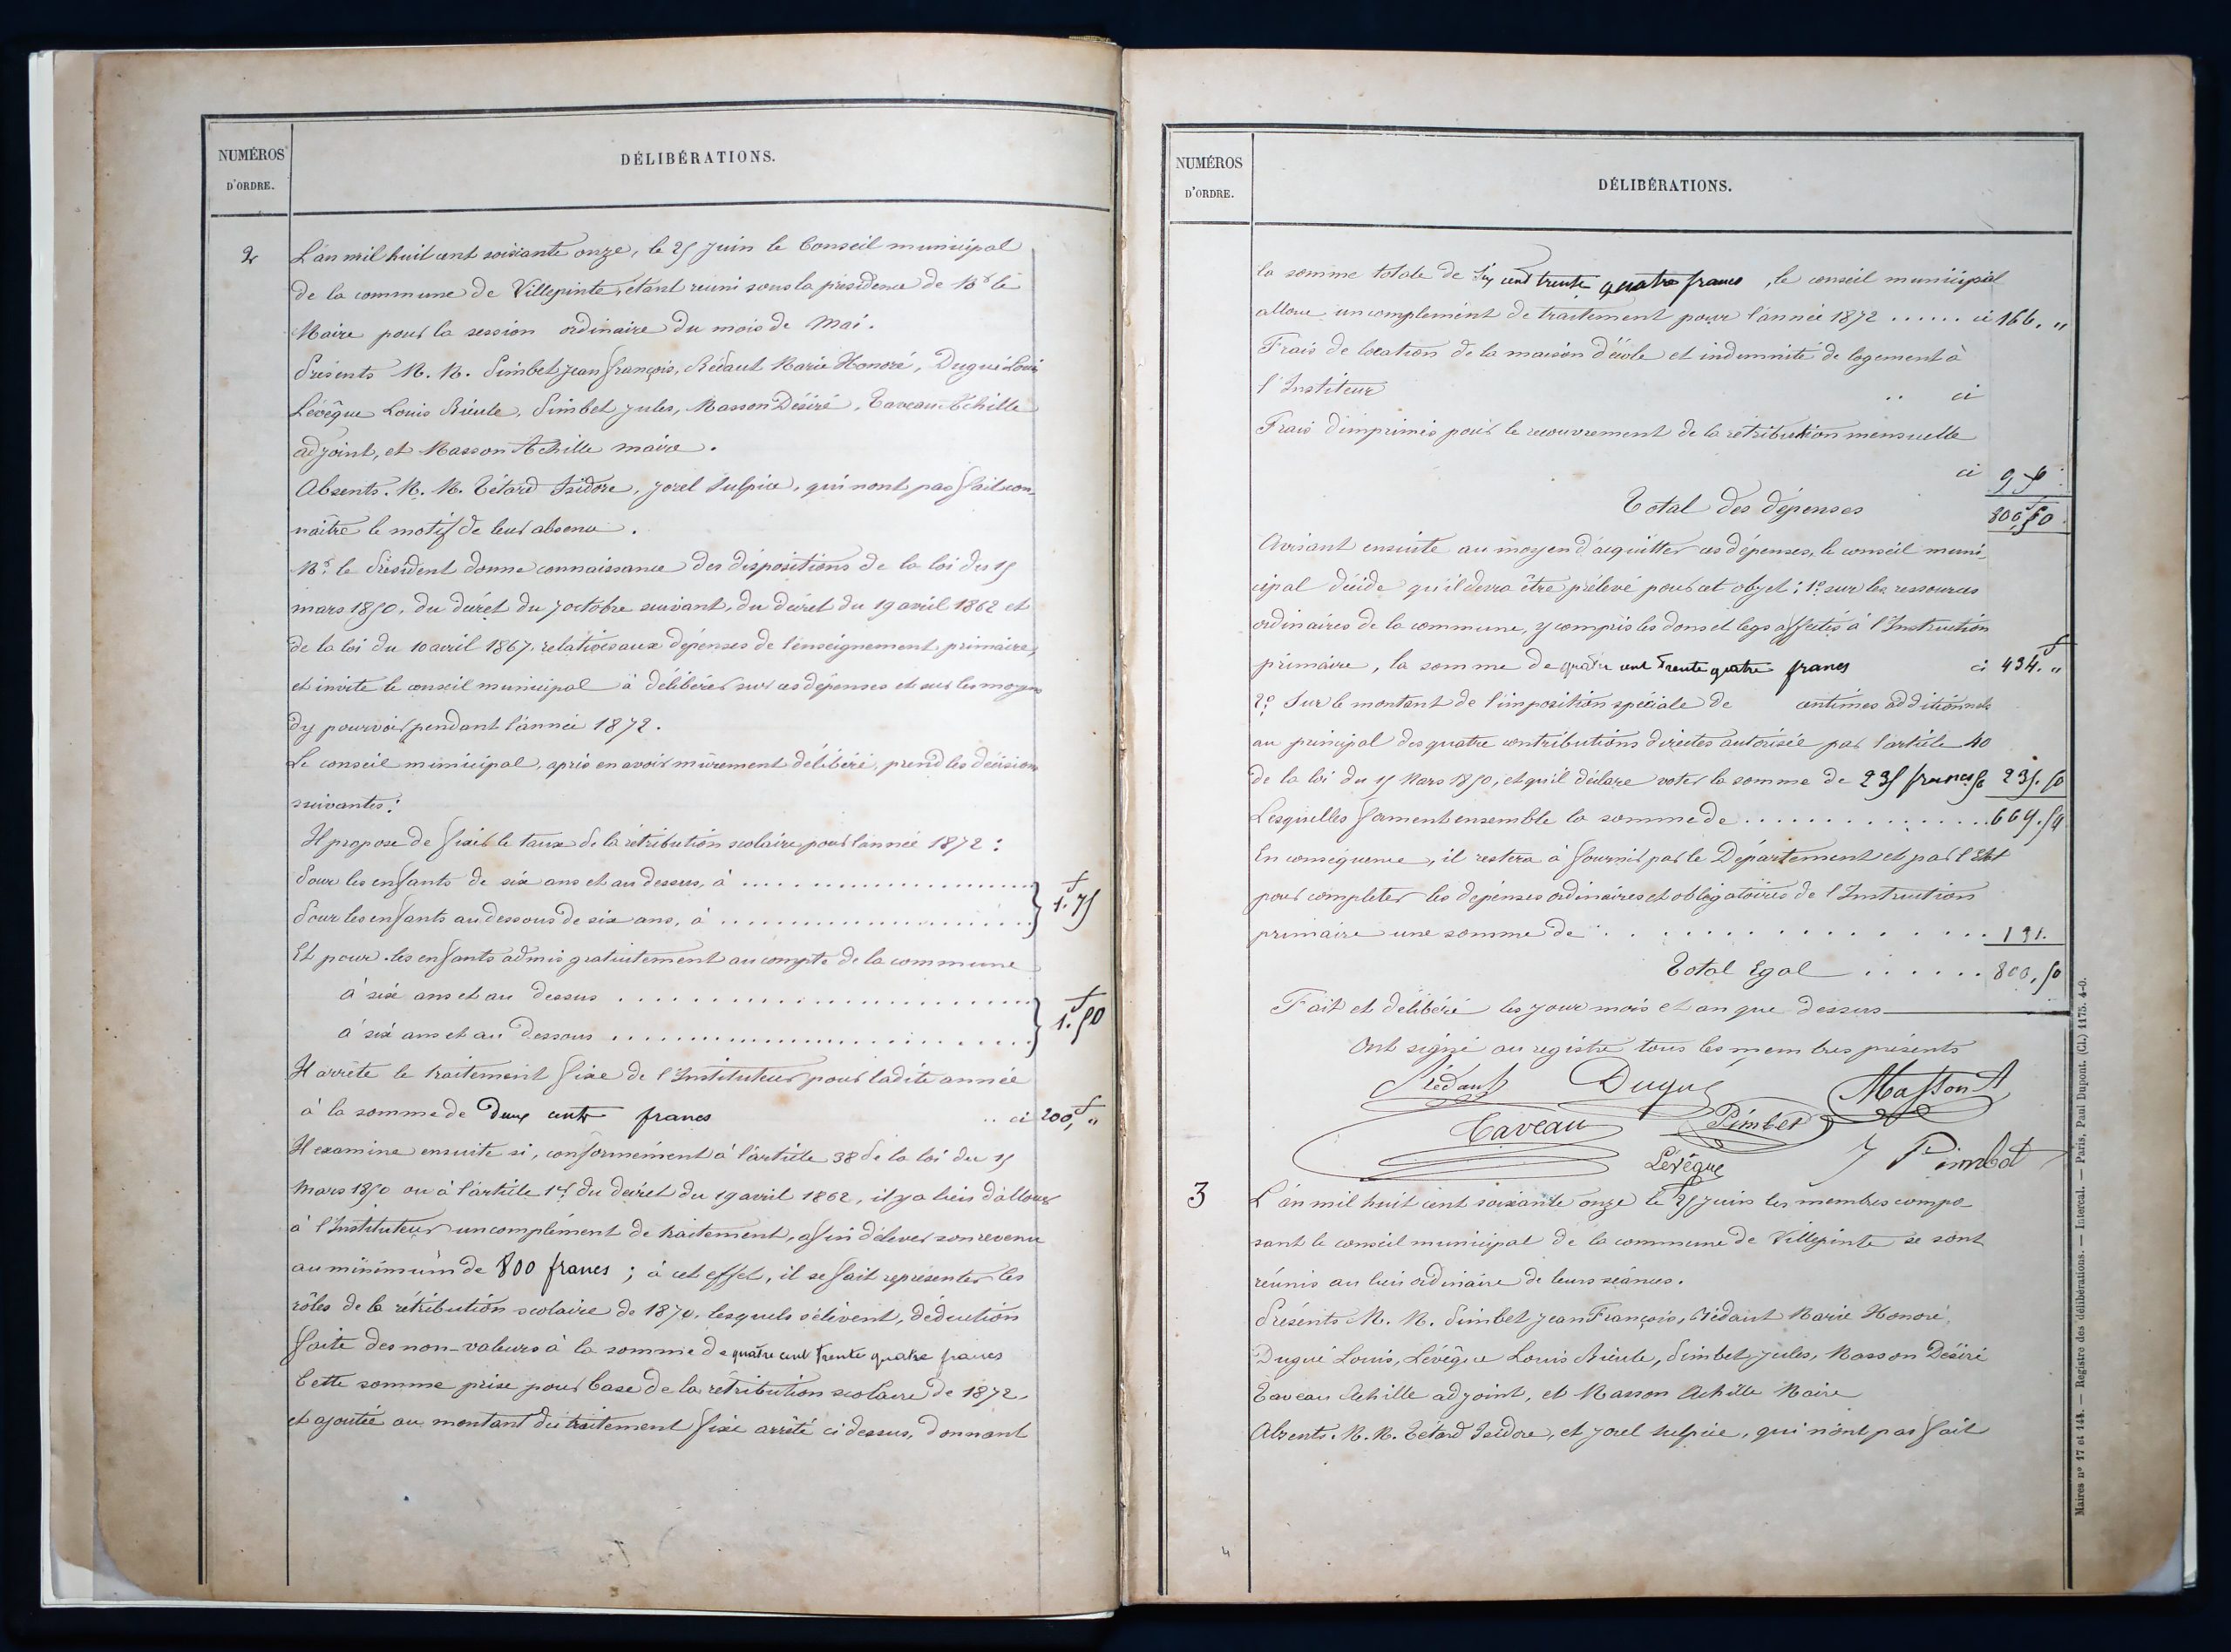 NUMÉROS
D'ORDRE.
DÉLIBÉRATIONS.
2
L'an mil huit cent soixante onze, le 25 juin le Conseil municipal
de la commune de Villepinte, étant reuni sous la présidence de Mr le
Maire pour la session ordinaire du mois de Mai.
Présents M. M. Pimbet Jean françois, Rédaut Marie Honoré, Dugué Louis
Lévêque Louis Aieule, Pimbet Jules, Masson Désiré, Taveau Achille
adjoint, et Masson Achille maire.
Absents. M. M. Tétard Isidore, Jorel Sulpice, qui n'ont pas fait con-
naître le motif de leur absence.
Mr. le Président donne connaissance des dispositions de la loi du 15
mars 1850, du décret du 7 octobre suivant, du décret du 19 avril 1862 et
de la loi du 10 avril 1867, relatives aux dépenses de l'enseignement primaire,
et invite le conseil municipal à délibérer sur ces dépenses et sur les moyens
d'y pourvoir pendant l'année 1872.
Le conseil municipal, après en avoir mûrement délibéré, prend les décisions
suivantes:
Il propose de fixer le taux de la rétribution scolaire pour l'année 1872:
Pour les enfants de six ans et au dessus, à ....................
Pour les enfants au dessous de six ans, à .................... } 1.f 75
Et pour les enfants admis gratuitement au compte de la commune
à six ans et au dessus ....................
à six ans et au dessous .................... } 1.f 50
Il arrête le traitement fixe de l'Instituteur pour ladite année
à la somme de Deux cents francs .. ci 200,f "
Il examine ensuite si, conformément à l'article 38 de la loi du 15
Mars 1850 ou à l'article 1er du décret du 19 avril 1862, il y a lieu d'allouer
à l'Instituteur un complément de traitement, afin d'élever son revenu
au minimum de 800 francs ; à cet effet, il se fait représenter les
rôles de la rétribution scolaire de 1870, lesquels s'élèvent, déduction
faite des non-valeurs à la somme de quatre cent trente quatre francs
Cette somme prise pour base de la rétribution scolaire de 1872,
et ajoutée au montant du traitement fixe arrêté ci dessus, donnant
NUMÉROS
D'ORDRE.
DÉLIBÉRATIONS.
la somme totale de Six cent trente quatre francs, le conseil municipal
alloue un complément de traitement pour l'année 1872 ...... ci 166. "
Frais de location de la maison d'école et indemnité de logement à
l'Institeur .. ci
Frais d'imprimés pour le recouvrement de la rétribution mensuelle
ci
Total des dépenses 800,f50
Avisant ensuite au moyen d'acquitter ces dépenses, le conseil muni-
cipal décide qu'il devra être prélevé pour cet objet; 1º sur les ressources
ordinaires de la commune, y compris les dons et legs affectés à l'Instruction
primaire, la somme de quatre cent trente quatre francs ci 434.f "
2º Sur le montant de l'imposition spéciale de centimes additionnels
au principal des quatre contributions directes autorisée par l'article 40
de la loi du 15 Mars 1850, et qu'il déclare voter la somme de 235 francs 50 235.50
Lesquelles forment ensemble la somme de ............... 669.50
En conséquence, il restera à fournir par le Département et par l'Etat
pour completer les dépenses ordinaires et obligatoires de l'Instruction
primaire une somme de ............... 131.
Total Egal ...... 800,50
Fait et délibéré les jour mois et an que dessus
Ont signé au registre tous les membres présents
Rédaut Dugué Masson A
Taveau Pimbet
Levêque J Pimbet
3
L'an mil huit cent soixante onze le 25 juin les membres compo-
sant le conseil municipal de la commune de Villepinte se sont
réunis au lieu ordinaire de leurs séances.
Présents M. M. Pimbet Jean François, Rédaut Marie Honoré,
Dugué Louis, Lévêque Louis Aieule, Pimbet Jules, Masson Désiré
Taveau Achille adjoint, et Masson Achille Maire
Absents. M. M. Tétard Isidore, et Jorel Sulpice, qui n'ont pas fait
4
Maires nº 17 et 144. — Registre des délibérations. — Intercal. — Paris, Paul Dupont. (Cl.) 1175. 4-0.